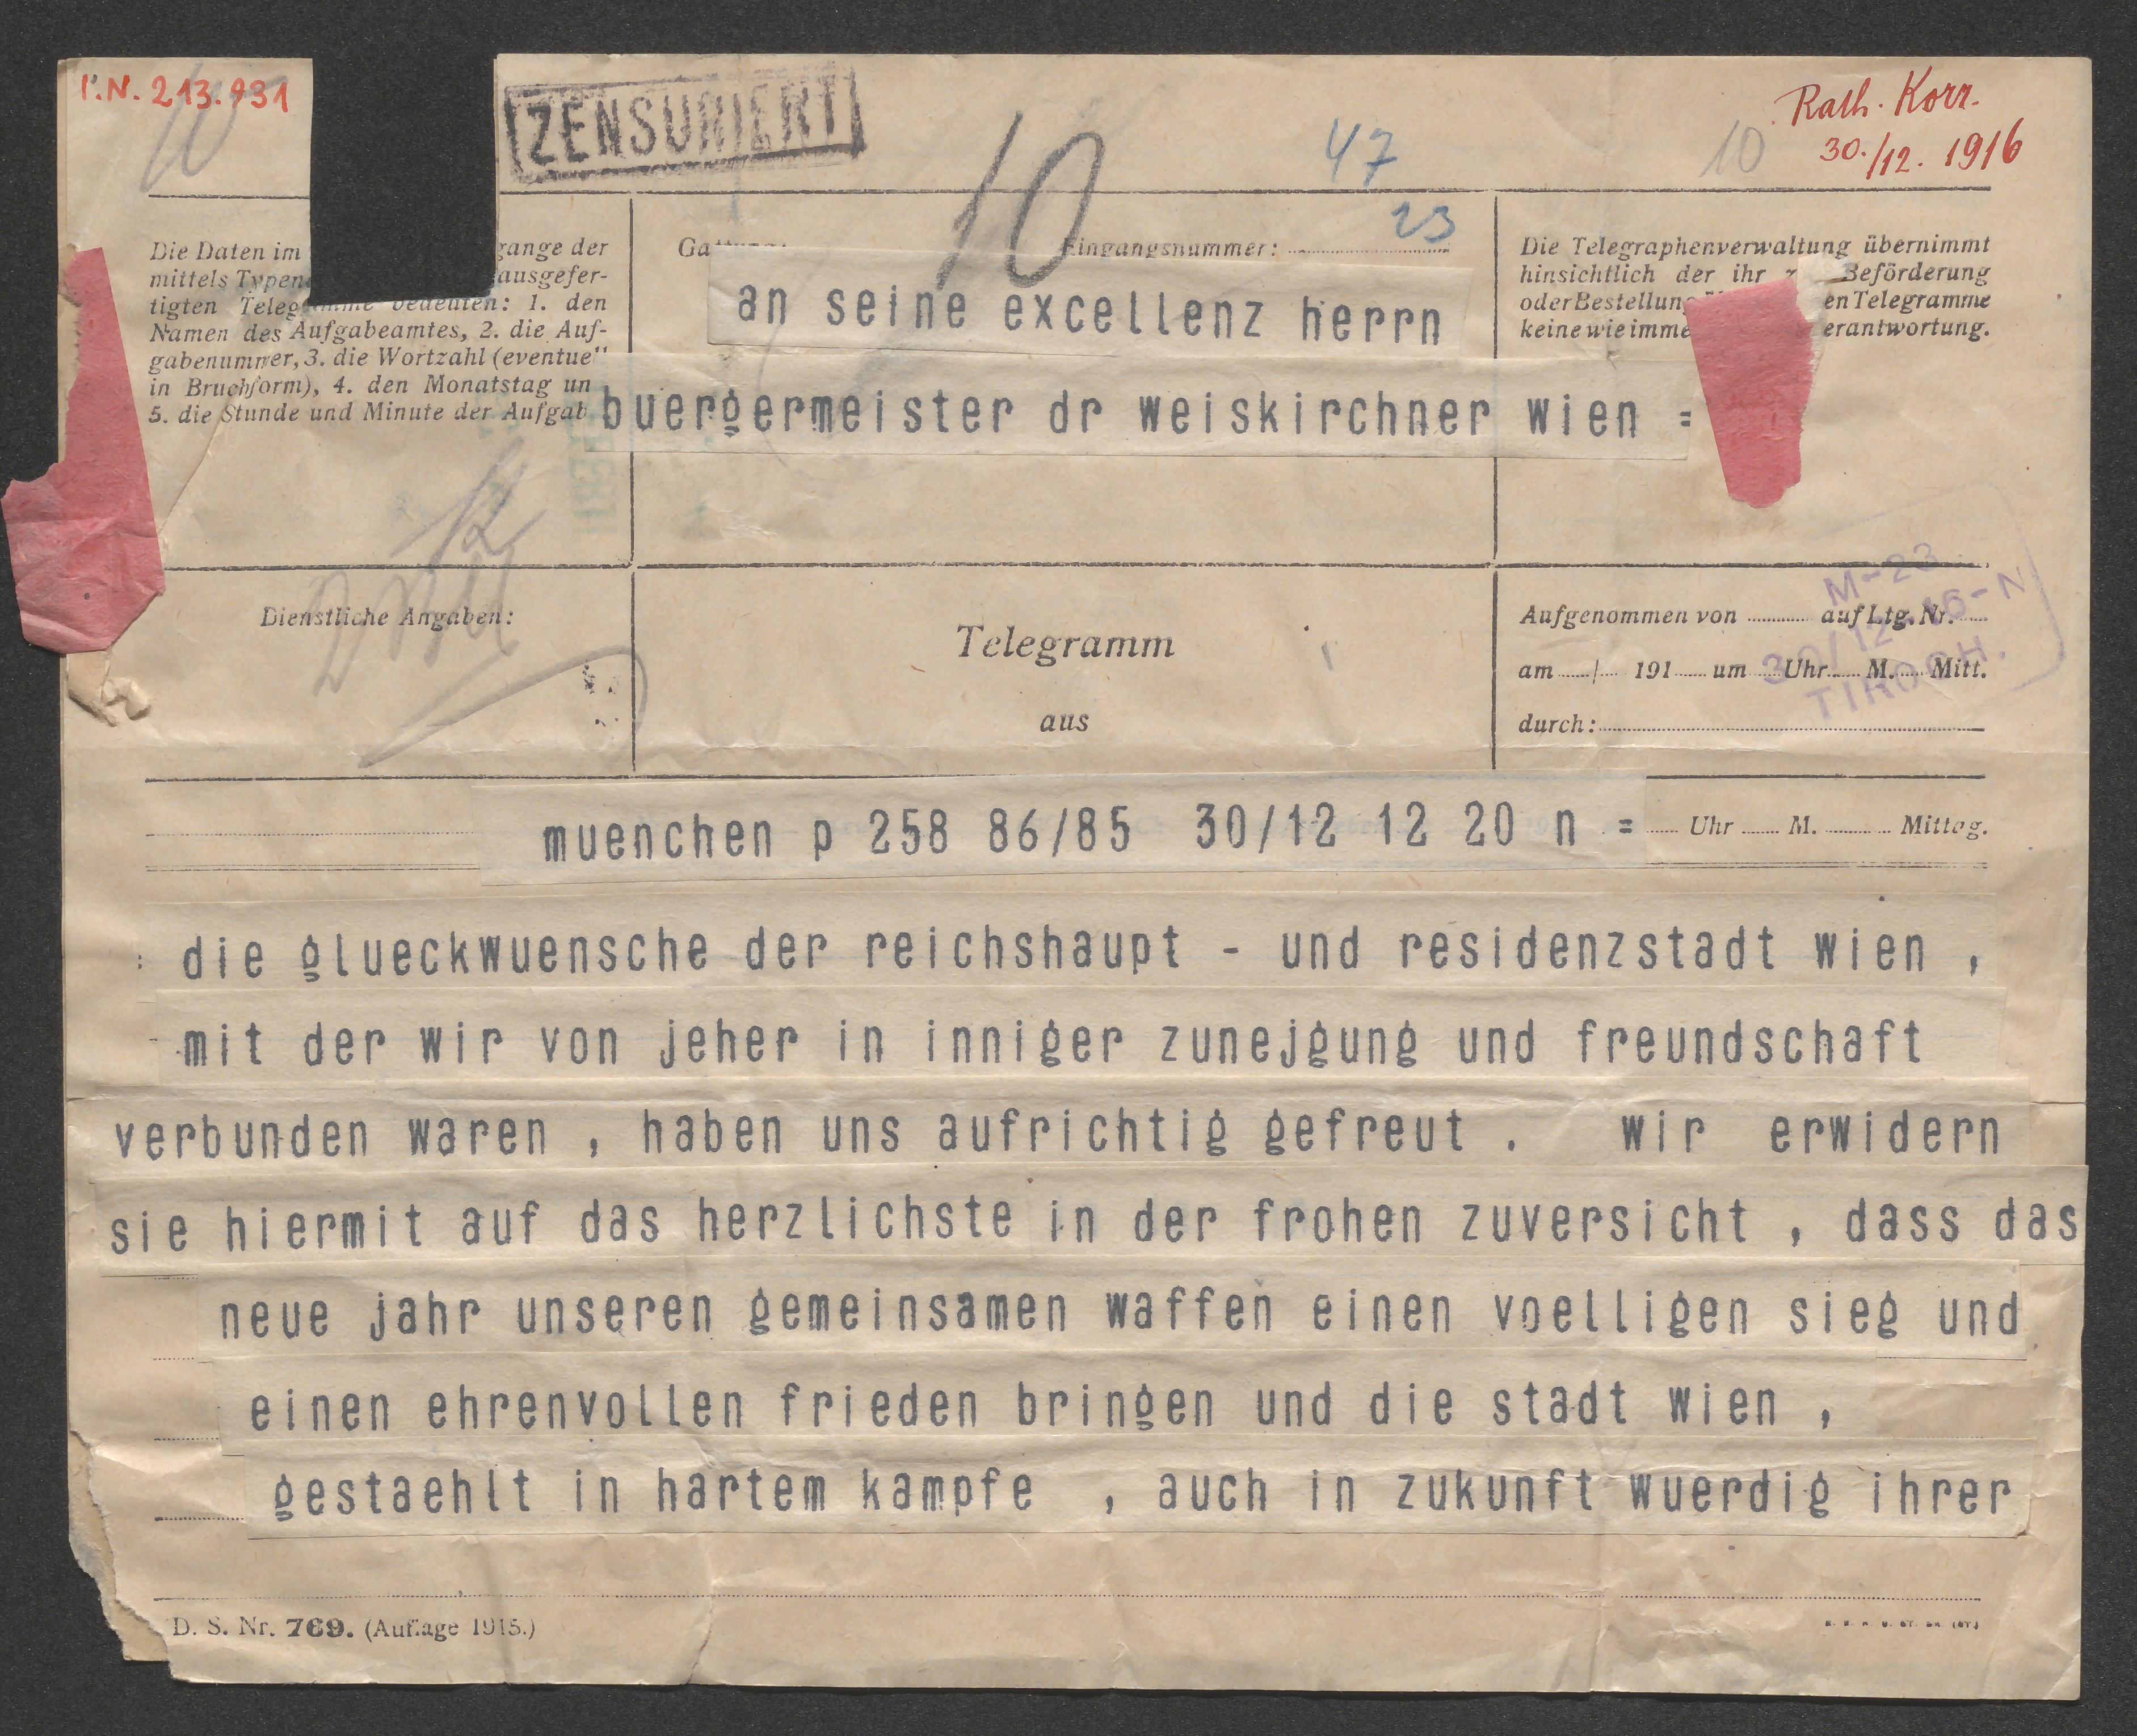 I.N. 213.931
ZENSURIERT
10
47
10
Rath. Korr.
30./12. 1916
Die Daten im gange der
mittels Typen ausgefer-
tigten Teleg bedeuten: 1. den
Namen des Aufgabeamtes, 2. die Auf-
gabenummer, 3. die Wortzahl (eventue
in Bruchform), 4. den Monatstag un
5. die Stunde und Minute der Aufgab
Eingangsnummer: 23
Die Telegraphenverwaltung übernimmt
hinsichtlich der ihr Beförderung
oder Bestellung en Telegramme
keine wie imme erantwortung.
an seine excellenz herrn
buergermeister dr weiskirchner wien =
Dienstliche Angaben:
Telegramm
aus
Aufgenommen von auf Ltg. Nr.
am / 191 um Uhr M. Mitt.
durch:
M-23
30/12 16-N
muenchen p 258 86/85 30/12 12 20 n =
Uhr M. Mittag.
: die glueckwuensche der reichshaupt - und residenzstadt wien ,
mit der wir von jeher in inniger zunejgung und freundschaft
verbunden waren , haben uns aufrichtig gefreut . wir erwidern
sie hiermit auf das herzlichste in der frohen zuversicht , dass das
neue jahr unseren gemeinsamen waffen einen voelligen sieg und
einen ehrenvollen frieden bringen und die stadt wien ,
gestaehlt in hartem kampfe , auch in zukunft wuerdig ihrer
D. S. Nr. 769. (Auflage 1915.)